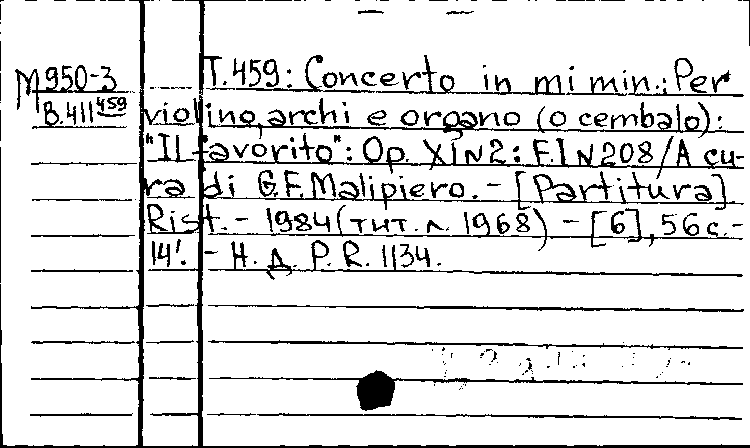 М950-3
B.411 459
T.459: Concerto in mi min.: Per
violino, archi e organo (o cembalo):
"Il favorito": Op. XI N2: F.I N208/A cu-
ra di G.F. Malipiero. - [Partitura]
Rist. - 1984 (тит. л. 1968) - [6], 56 с. -
14'. - Н. д. P.R. 1134.